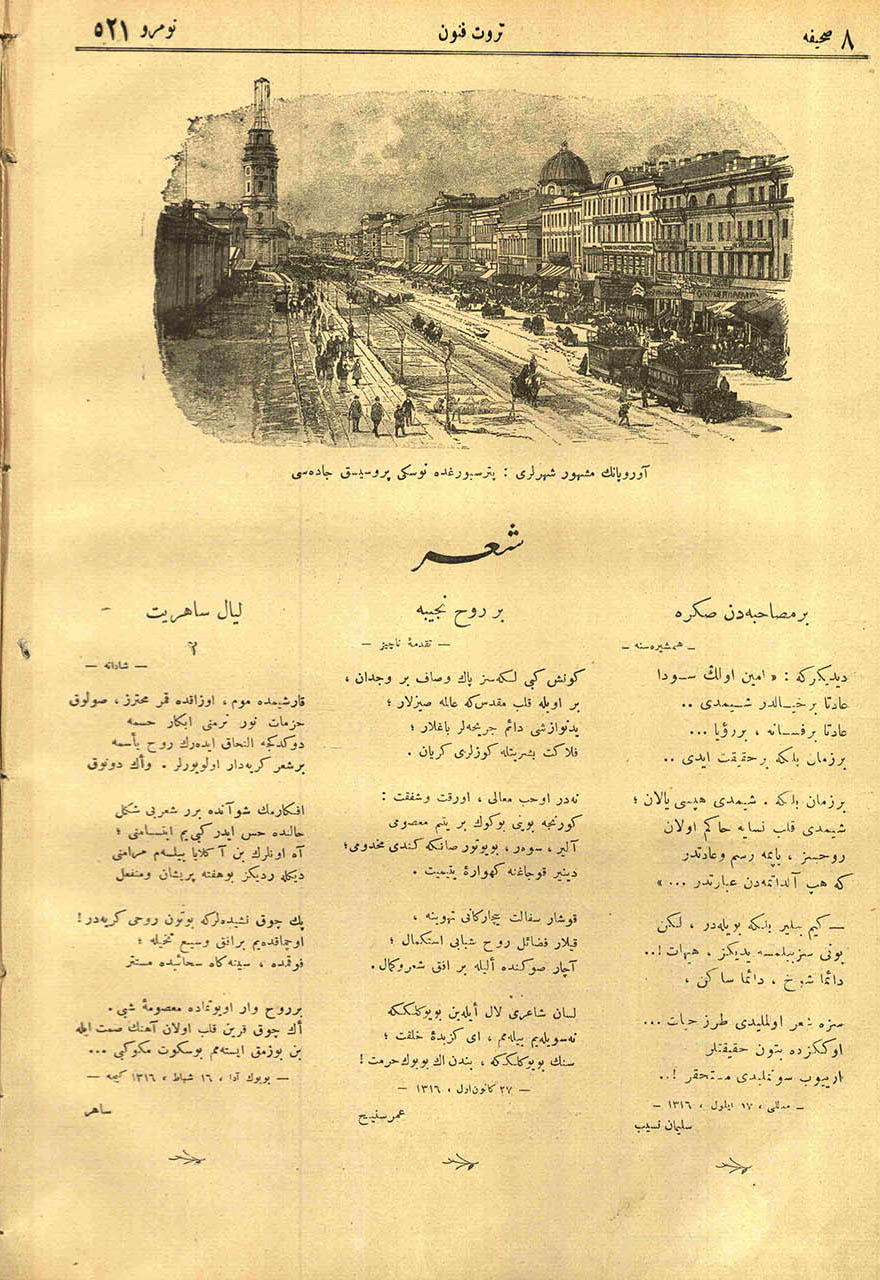 ٨ صحیفه
ثروت فنون
نومرو ٥٢١
آوروپانك مشهور شهرلری : پترسبورغده نوسكی پروسپسق جاده‌سی
شعر
بر مصاحبه‌دن صكره
ـ همشیره‌سنه ـ
دیدیكز كه : « امین اولك سـودا
عادتا بر خیـالدر شـیمدی ..
عادتا بر فسـانه ، بر رؤیا ...
بر زمان بلكه بر حقیقت ایدی ..
بر زمان بلكه . شیمدی هپسی یالان ؛
شیمدی قلب نسایه حاكم اولان
روحسز ، یاپمه رسم وعادتدر
كه هپ آلداتمه‌دن عبارتدر ... »
— كیم بیلیر بلكه بویله‌در ، لكن
بونی سز بیلمسه یدیكز ، هیهات !..
دائما شوخ ، دائما ساكن ،
سزه شعر اولملیدی طرز حیات ...
اوككزده بتون حقیقتلر
اریيوب سونملیدی مستحقر !..
ـ مدللی ، ١٧ ایلول ، ١٣١٦ ـ
سلیمان نسیب
بر روح نجیبه
— تقدمهٔ ناچیز —
كونش كبی لكه‌سز پاك وصاف بر وجدان ،
بر اویله قلب مقدس كه عالمه صیزلار ؛
ید نوازشی دائم جریحه‌لر باغلار ؛
فلاكت بشریتله كوزلری كریان .
نه‌در او حب معالی ، او رقت وشفقت :
كورنجه بوینی بوكوك بر یتیم معصومی
آلیر ، سوه‌ر ، بویوتور صانكه كندی مخدومی؛
دینیر قوجاغنه كهوارهٔ یتیمیت .
قوشار سفالت بیچاركانی تهوینه ،
قیلار فضائل روح شبابی استكمال ؛
آچار صوكنده ألیله بر افق شعر وكمال.
لسان شاعری لال أیله‌ین بویوكلككه
نه سویله‌یم بیله‌مم ، ای كزیدهٔ خلقت ؛
سنك بویوكلككه ، بندن اك بویوك حرمت !
— ٢٧ كانون اول ، ١٣١٦ —
عمر سنیح
لیال ساهریت
٢
— شادانه —
قارشیمده موم ، اوزاقده قمر محترز ، صولوق
حزمات نور نرمنی ابكار حسمه
دوكدكجه التحاق ایده‌رك روح یأسمه
بر شعر كریه‌دار اولویورلر . واك دونوق
افكارمك شو آنده برر شعر بی شكل
حالنده حس ایدر كبی یم ابتسامنی ؛
آه اونلرك بن آكلایا بیلسه‌م مرامنی
دیكله ردیكز بو هفته پریشان ومنفعل
پك چوق نشیده‌لر كه بوتون روحی كریه‌در !
اوچماقده‌یم بر افق وسیع تخیله ؛
فوقمده ، سینه‌كاه سحائبده مستتر
بر روح وار اویوتماده معصومهٔ شبی .
أك چوق قرین قلب اولان آهنك صمت ایله
بن بوزمق ایسته‌مم بو سكوت مكوكبی ...
— بویوك آدا ، ١٦ شباط ، ١٣١٦ كیجه —
ساهر